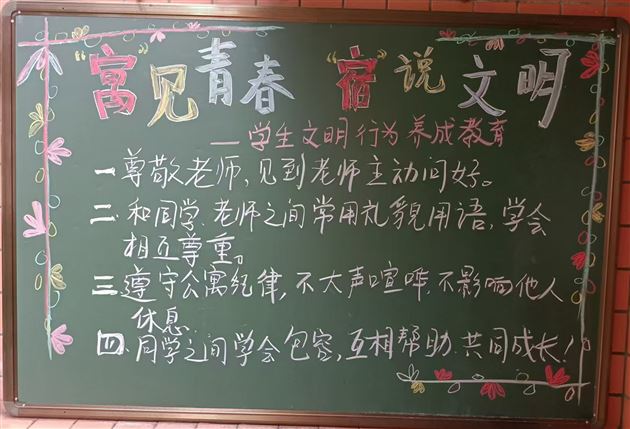 “寓”见青春 “宿”说文明
——学生文明行为养成教育
一.尊敬老师,见到老师主动问好。
二.和同学.老师之间常用礼貌用语,学会
相互尊重。
三.遵守公寓纪律,不大声喧哗,不影响他人
休息.
四.同学之间学会包容,互相帮助.共同成长!